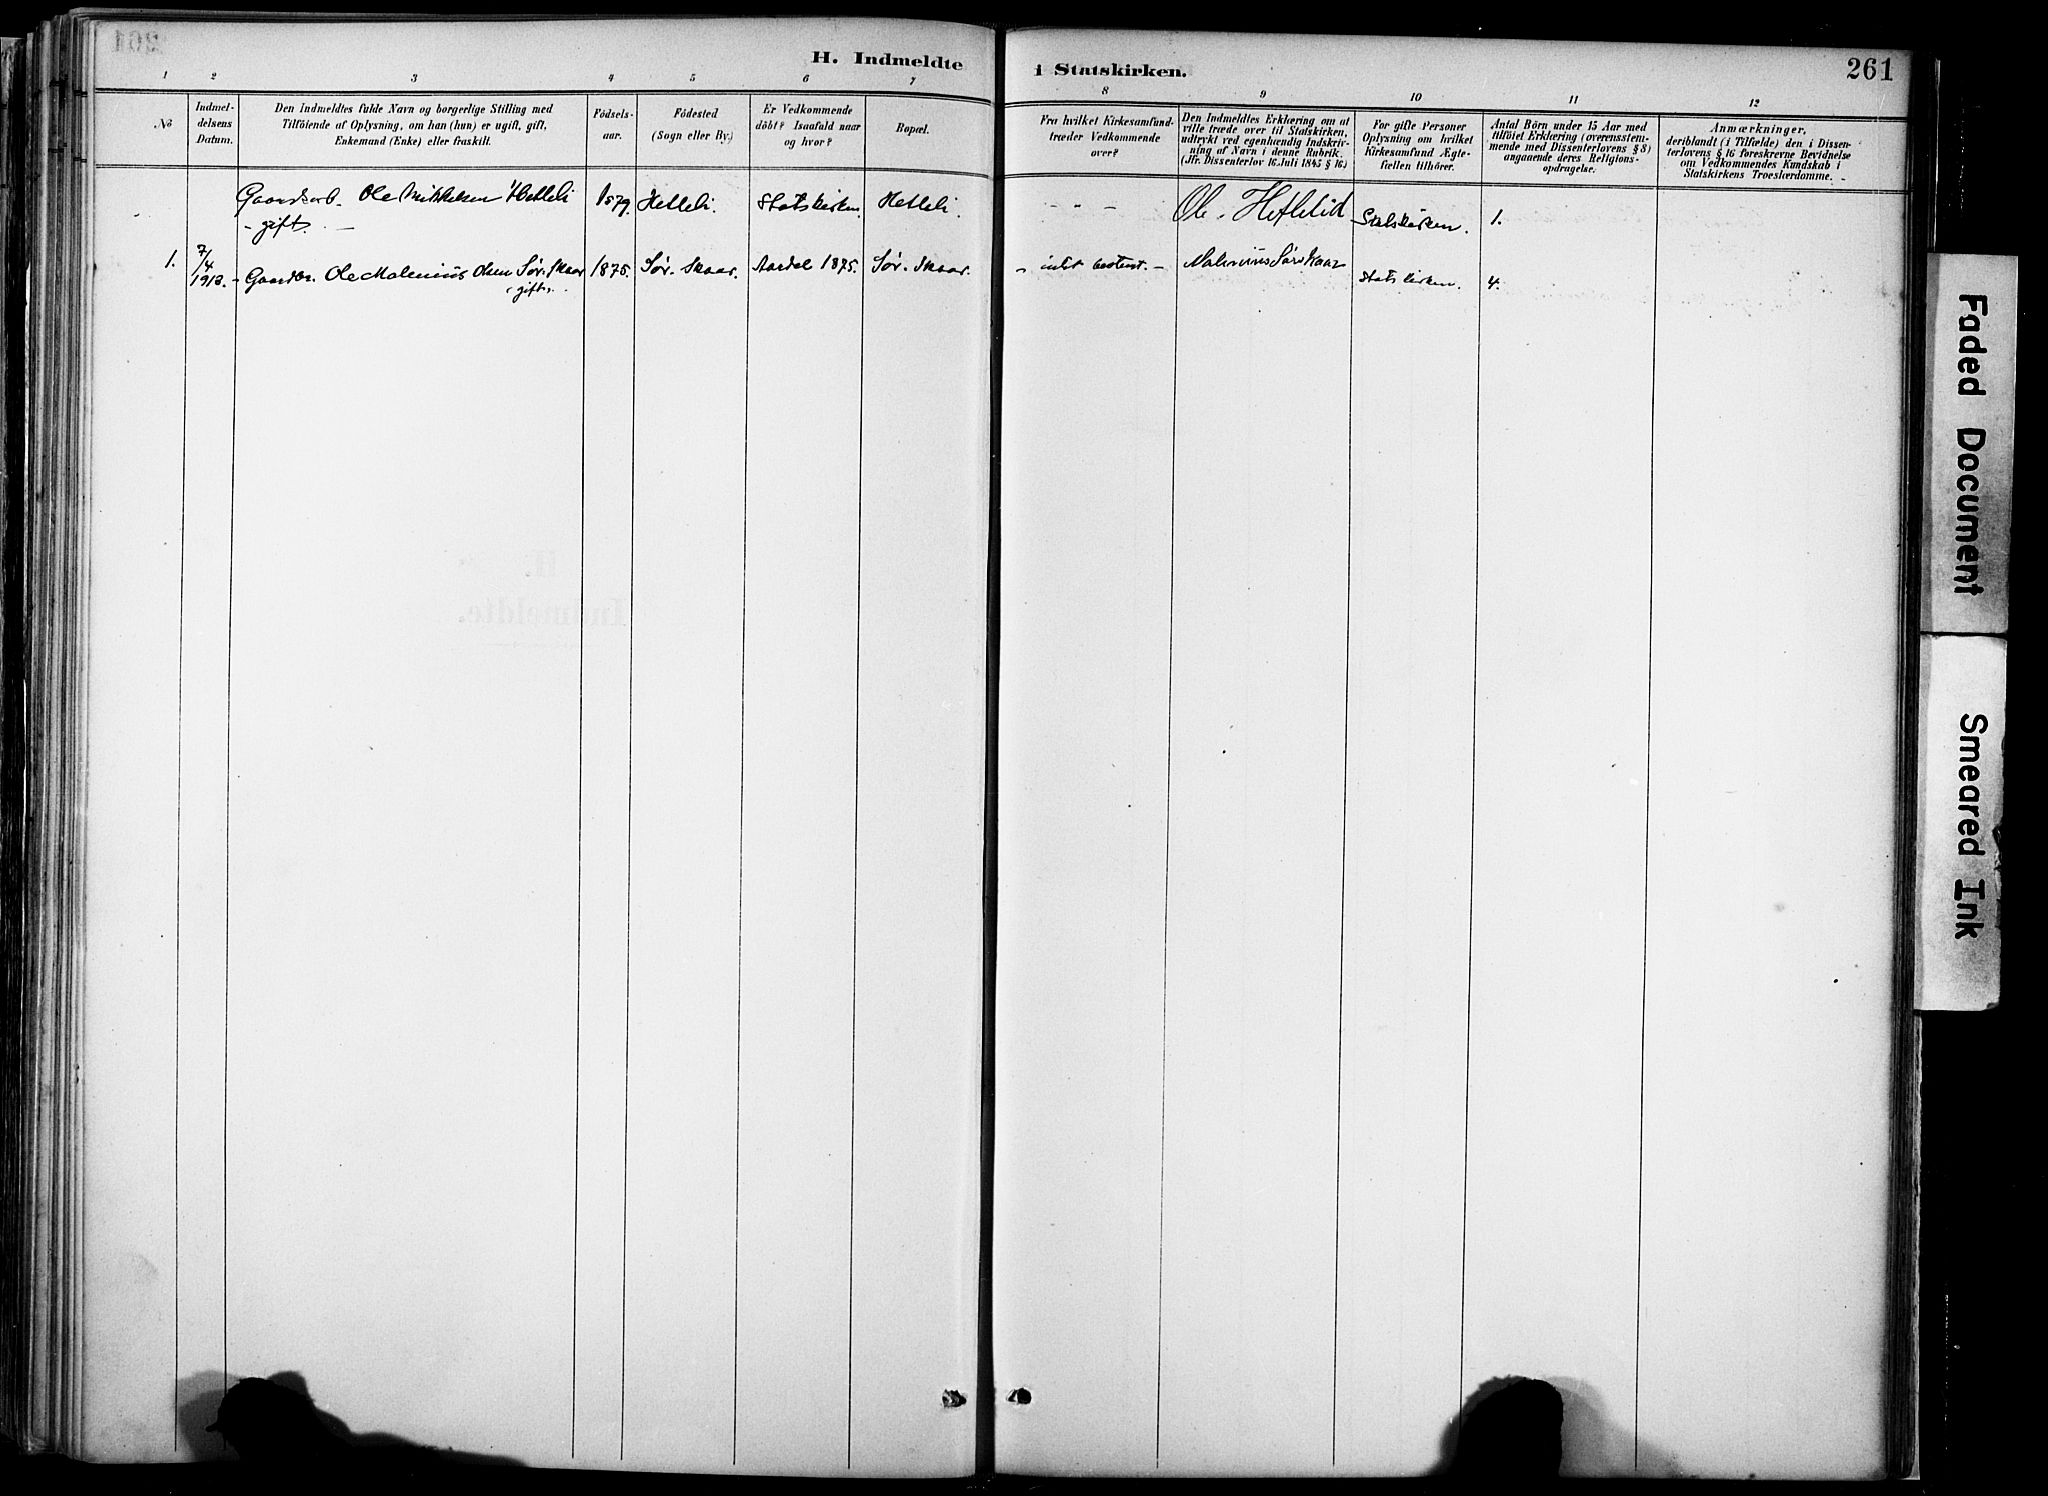 H. Indmeldte i Statskirken.
261
1 2 3 4 5 6 7 8 9 10 11 12
No
Indmel-
delsens
Datum.
Den Indmeldtes fulde Navn og borgerlige Stilling med
Tilföiende af Oplysning, om han (hun) er ugift, gift,
Enkemand (Enke) eller fraskilt.
Födsels-
aar.
Födested
(Sogn eller By.)
Er Vedkommende
döbt? Isaafald naar
og hvor?
Bopæl.
Fra hvilket Kirkesamfund
træder Vedkommende
over?
Den Indmeldtes Erklæring om at
ville træde over til Statskirken,
udtrykt ved egenhændig Indskriv-
ning af Navn i denne Rubrik.
(Jfr. Dissenterlov 16. Juli 1845 § 16.)
For gifte Personer
Oplysning om hvilket
Kirkesamfund Ægte-
fællen tilhörer.
Antal Börn under 15 Aar med
tilföiet Erklæring (overensstem-
mende med Dissenterlovens § 8)
angaaende deres Religions-
opdragelse.
Anmærkninger,
deriblandt (i Tilfælde) den i Dissen-
terlovens § 16 foreskrevne Bevidnelse
om Vedkommendes Kundskab i
Statskirkens Troeslærdomme.
Ole Mikkelsen Hetleli 1879. Hetleli. Statskirken. Hetleli. - " - Ole Hetlelid Statskirken. 1.
- gift. -
1. 7/4 1913. - Gaardbr. Ole Malenius Olsen Sør. Skaar 1875. Sør. Skaar. Aardal 1875. Sør. Skaar. - intet bestemt. - Malenius Sørskaar Statskirken. 4.
gift.
H.
Indmeldte.
Faded Document
Smeared Ink